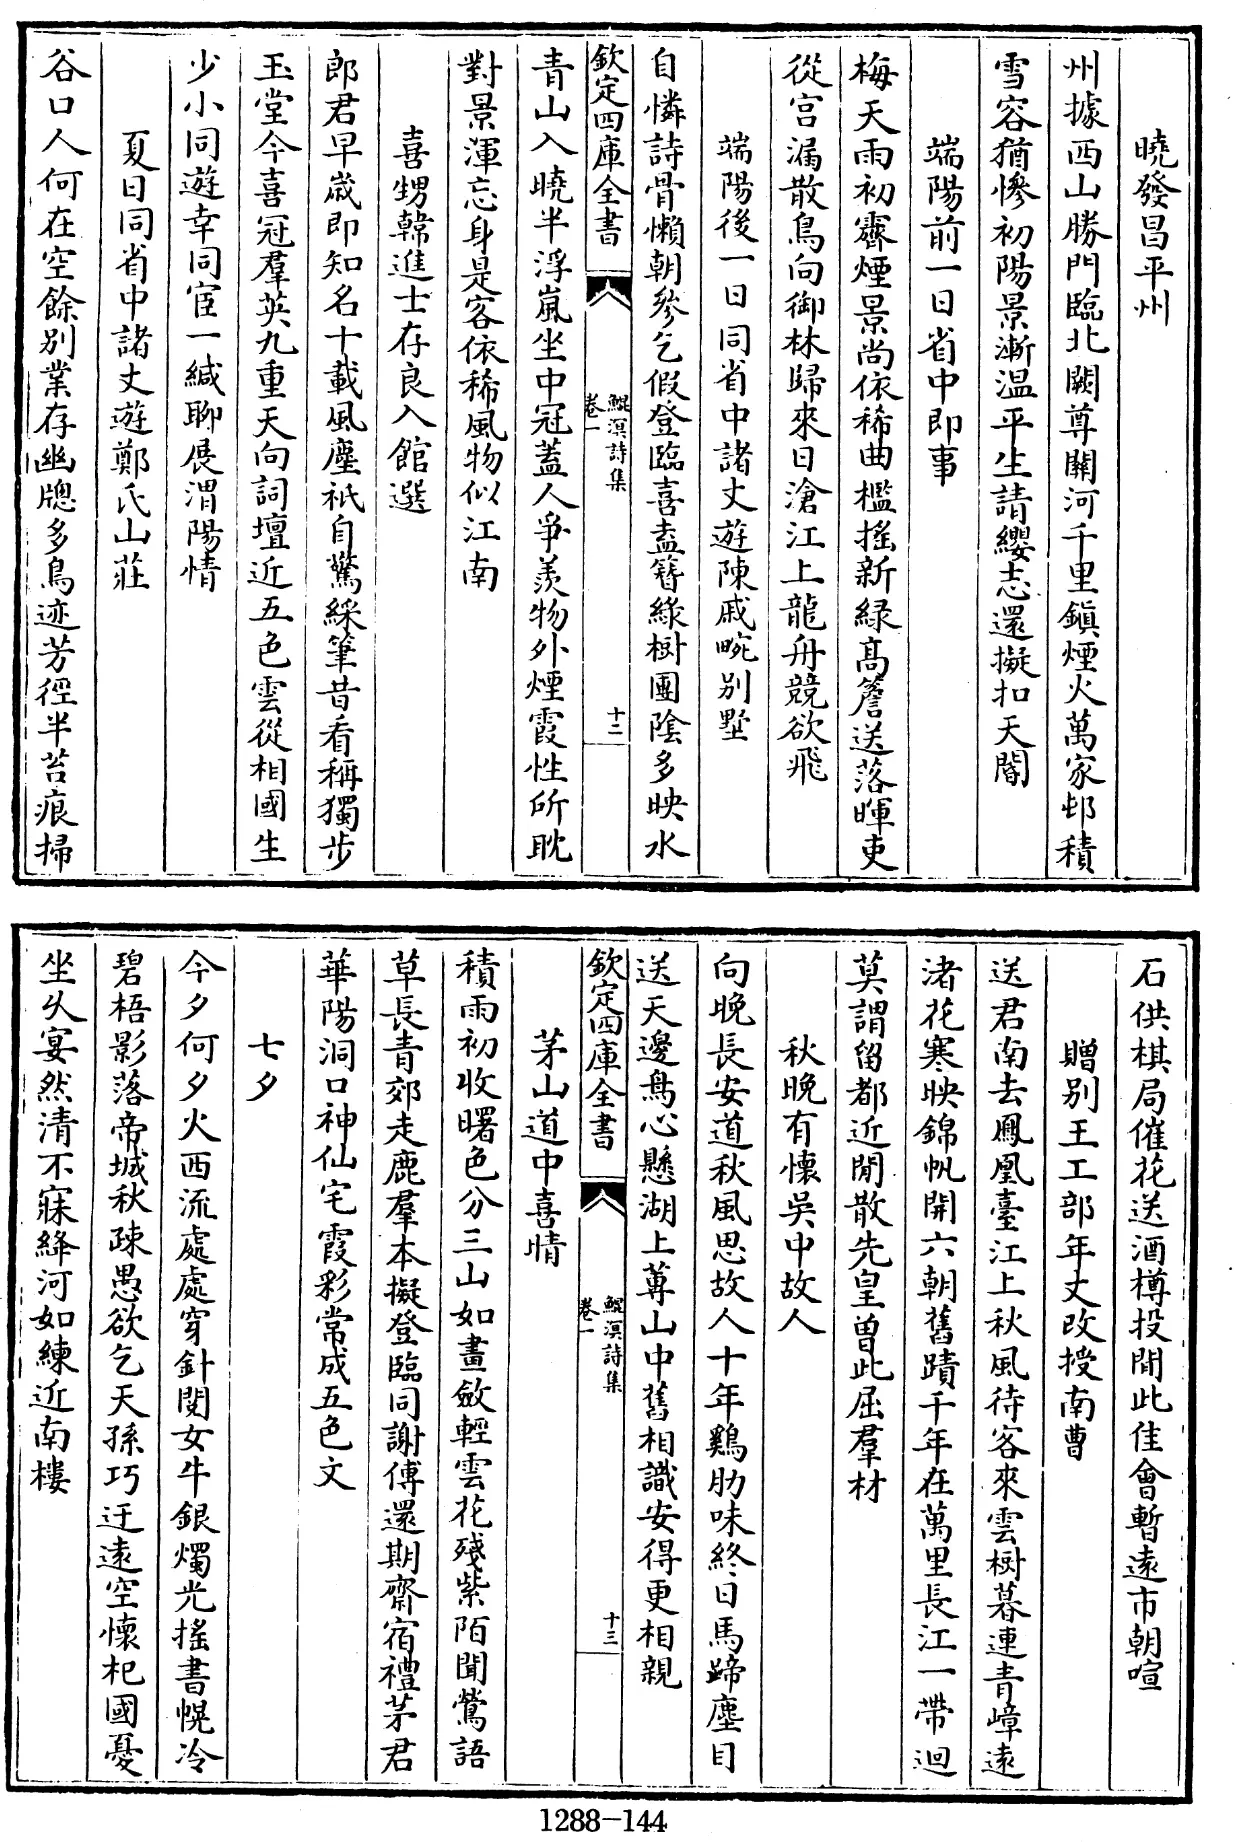 曉發昌平州
州據西山勝門臨北闕尊關河千里鎭煙火萬家邨積
雪容猶慘初陽景漸温平生請纓志還擬扣天閽
端陽前一日省中即事
梅天雨初霽煙景尚依稀曲檻摇新緑髙簷送落暉吏
從宫漏散鳥向御林歸來日滄江上龍舟競欲飛
端陽後一日同省中諸丈遊陳戚畹别墅
自憐詩骨懶朝參乞假登臨喜盍簪緑樹團陰多映水
欽定四庫全書
鯤溟詩集
卷一
十二
青山入曉半浮嵐坐中冠蓋人爭羨物外煙霞性所耽
對景渾忘身是客依稀風物似江南
喜甥韓進士存良入館選
郎君早歳即知名十載風塵祇自驚綵筆昔看稱獨步
玉堂今喜冠羣英九重天向詞壇近五色雲從相國生
少小同遊幸同宦一緘聊展渭陽情
夏日同省中諸丈遊鄭氏山莊
谷口人何在空餘别業存幽牎多鳥迹芳徑半苔痕掃
石供棋局催花送酒樽投閒此佳會暫遠市朝喧
贈别王工部年丈改授南曹
送君南去鳳凰臺江上秋風待客來雲樹暮連青嶂遠
渚花寒映錦帆開六朝舊蹟千年在萬里長江一帶迴
莫謂留都近閒散先皇曽此屈羣材
秋晚有懷吳中故人
向晚長安道秋風思故人十年鷄肋味終日馬蹄塵目
送天邊鳥心懸湖上蓴山中舊相識安得更相親
欽定四庫全書
鯤溟詩集
卷一
十三
茅山道中喜晴
積雨初收曙色分三山如畫斂輕雲花殘紫陌聞鶯語
草長青郊走鹿羣本擬登臨同謝傅還期齋宿禮茅君
華陽洞口神仙宅霞彩常成五色文
七夕
今夕何夕火西流處處穿針閔女牛銀燭光摇書幌冷
碧梧影落帝城秋疎愚欲乞天孫巧迂逺空懷杞國憂
坐久宴然清不寐絳河如練近南樓
1288—144